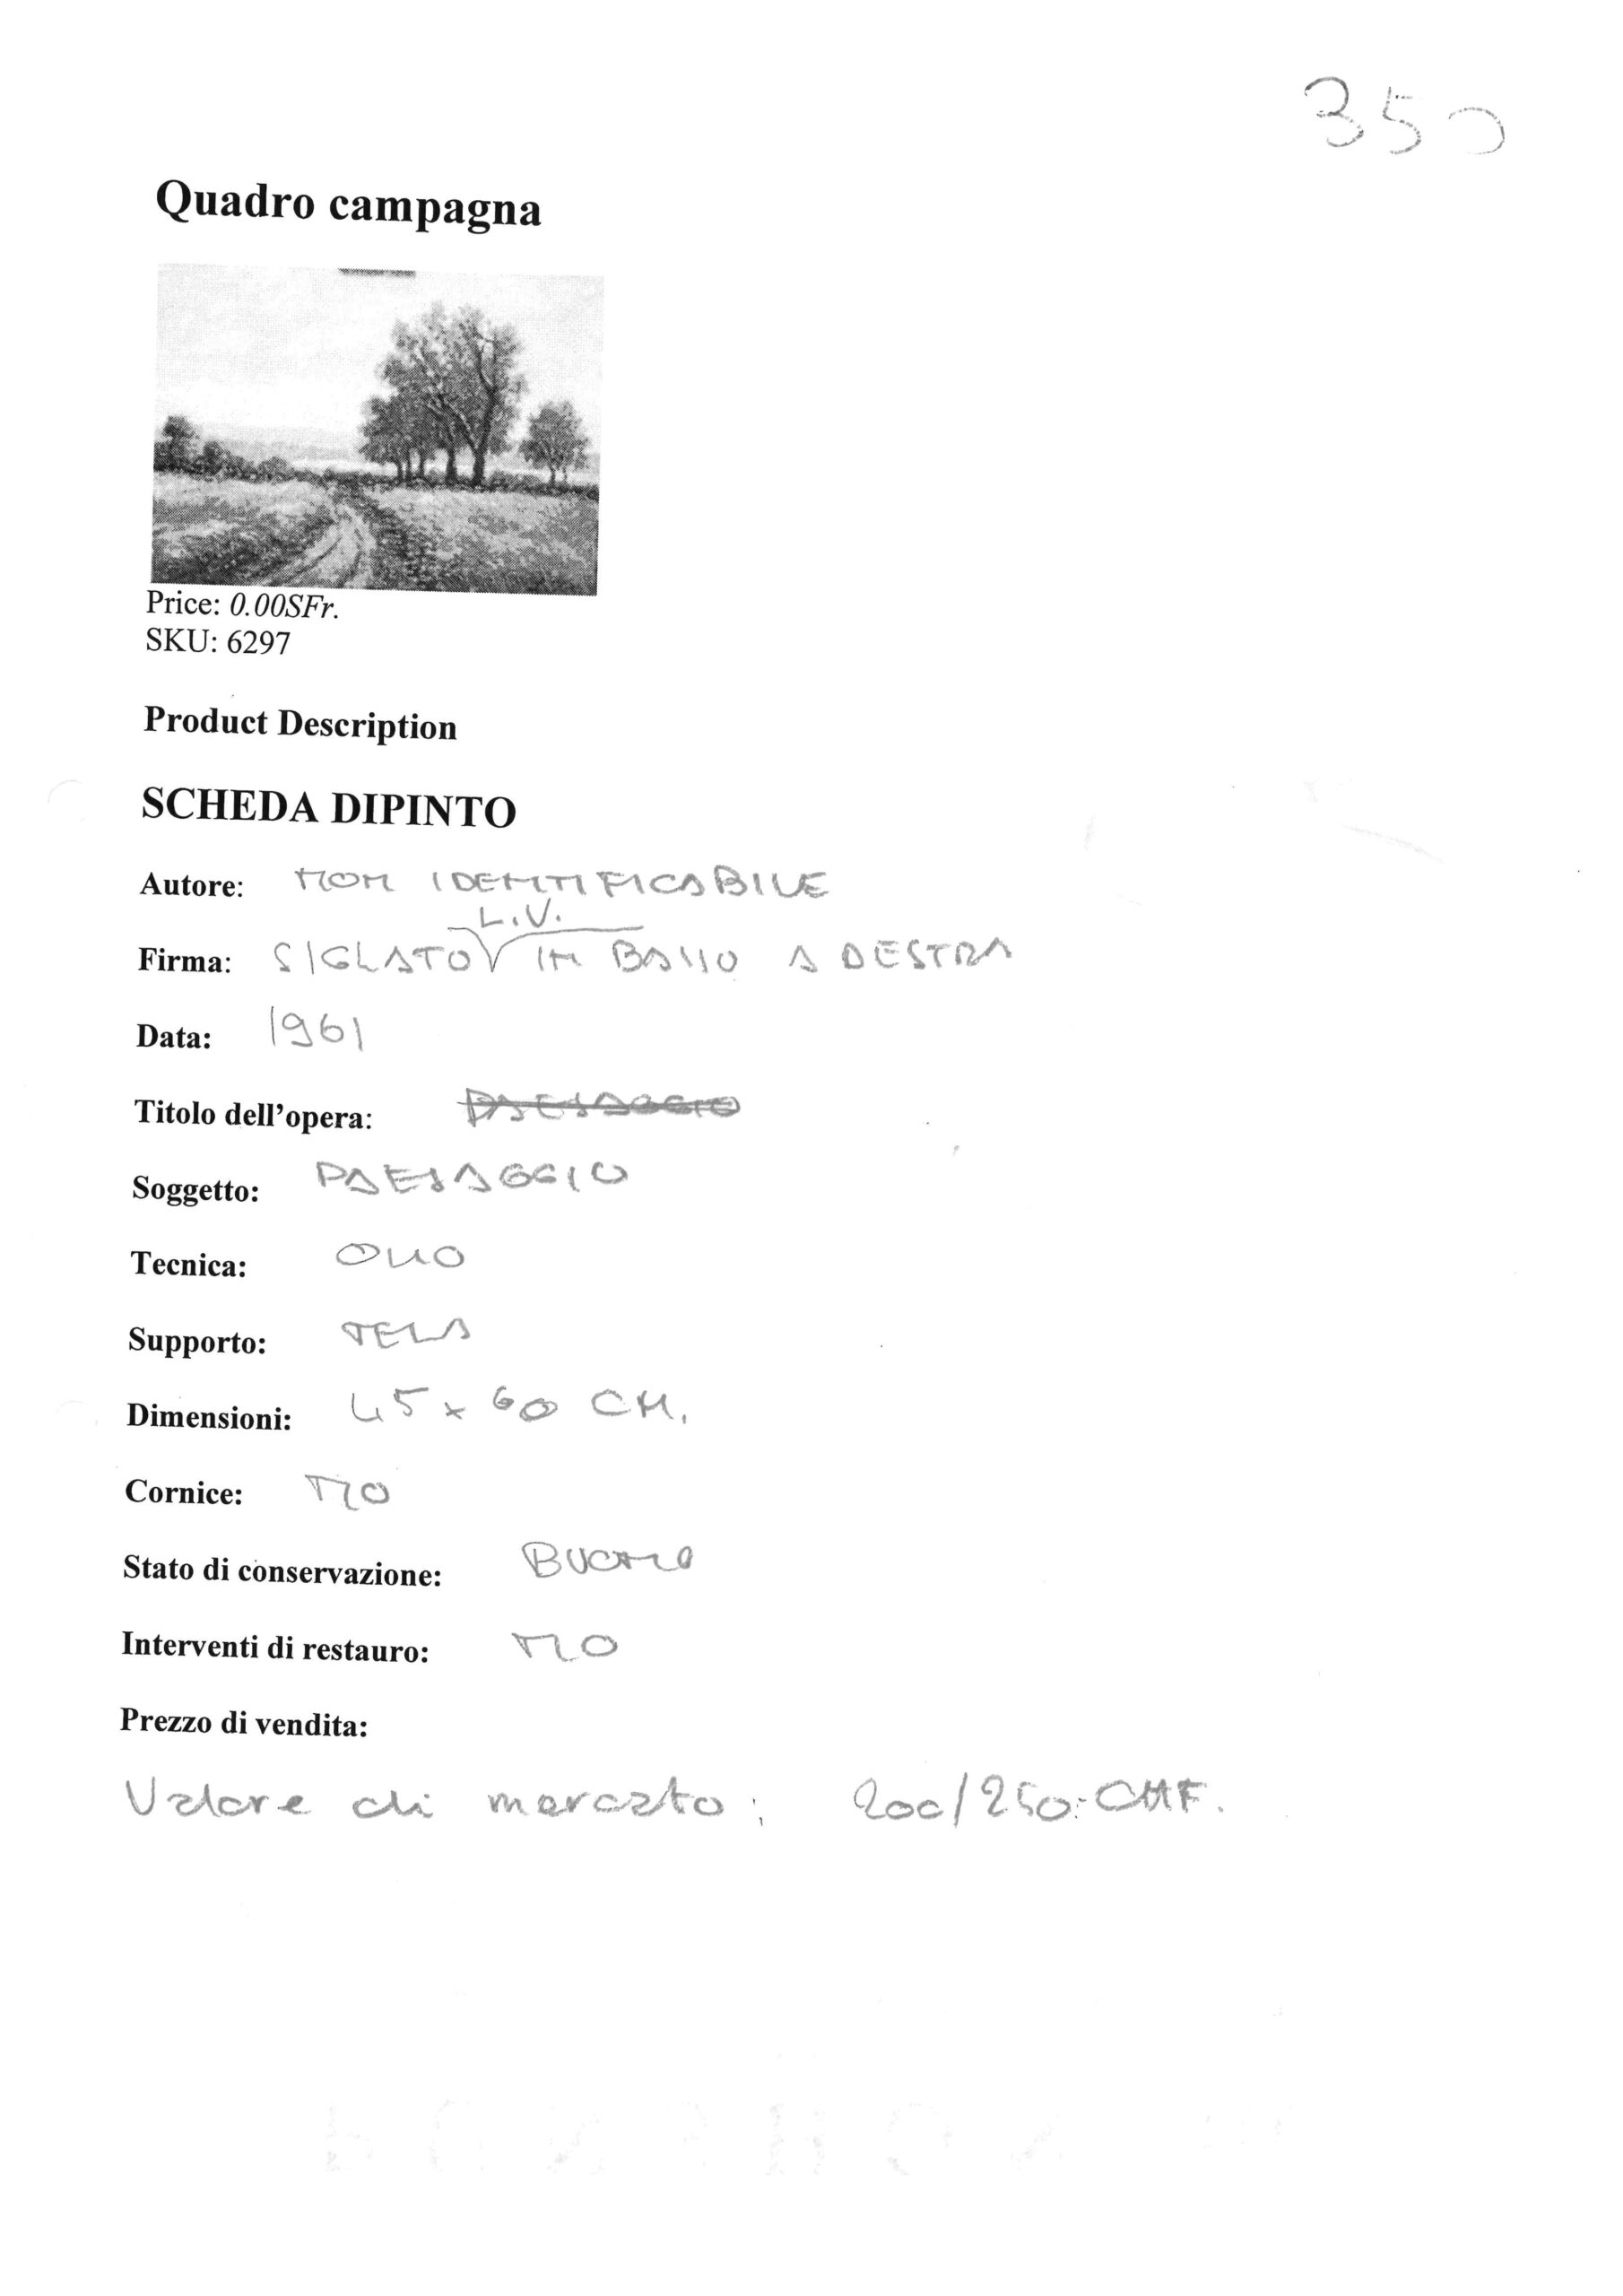 350
Quadro campagna
Price: 0.00SFr.
SKU: 6297
Product Description
SCHEDA DIPINTO
Autore: NON IDENTIFICABILE
Firma: SIGLATO L.V. IN BASSO A DESTRA
Data: 1961
Titolo dell'opera: PAESAGGIO
Soggetto: PAESAGGIO
Tecnica: OLIO
Supporto: TELA
Dimensioni: 45 x 60 CM.
Cornice: NO
Stato di conservazione: BUONO
Interventi di restauro: NO
Prezzo di vendita:
Valore di mercato: 200/250.- CHF.